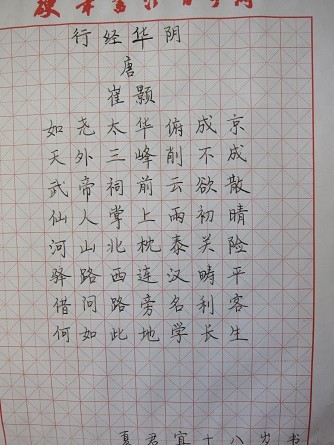 行经华阴
唐
崔颢
如尧太华俯成京
天外三峰削不成
武帝祠前云欲散
仙人掌上雨初晴
河山北枕泰关险
驿路西连汉畴平
借问路旁名利客
何如此地学长生
夏君宜十八岁书